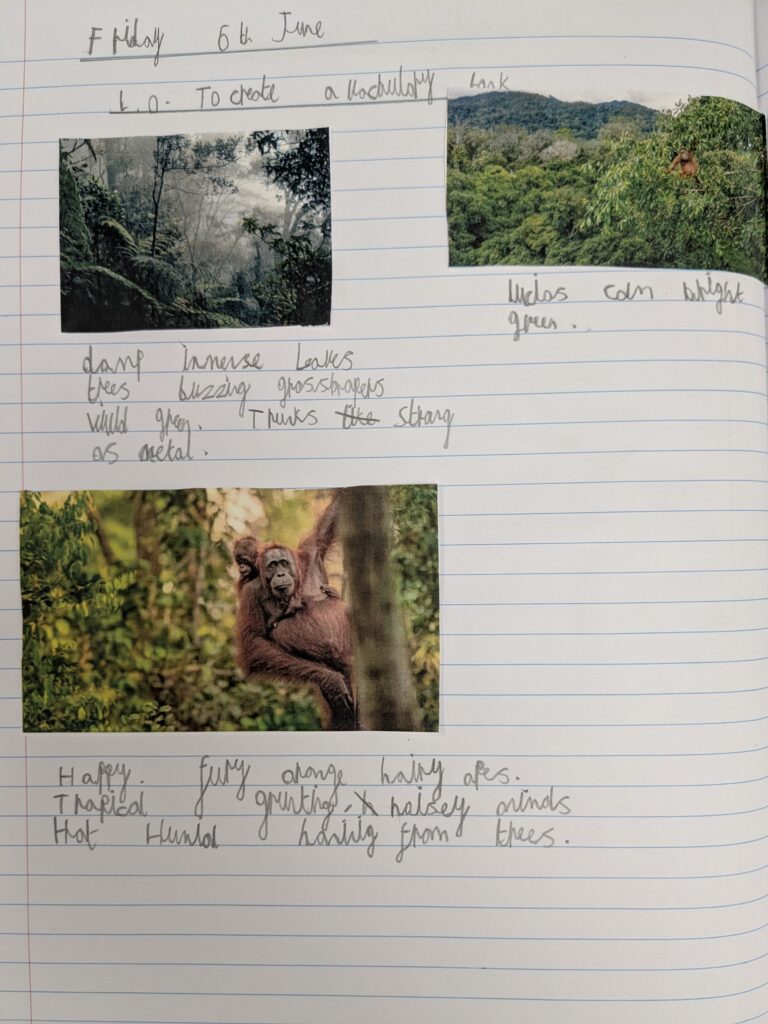 Friday 6th June
L.O. To create a vocbulory bank
lucios calm bright
green.
damp immense leaves
trees buzzing grasshopers
vivid green. Trunks like strong
as metal.
Happy. fury orange hairy apes.
Tropical grunting, noisey
Hot Humid from trees.